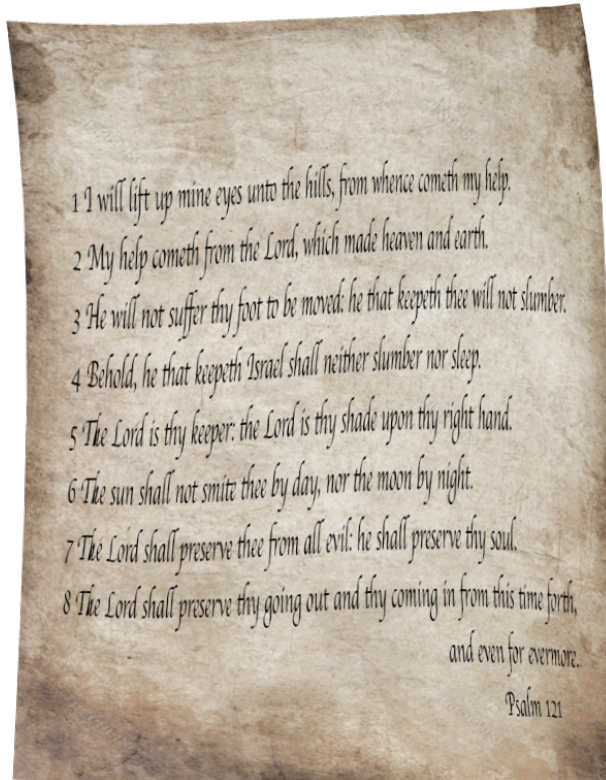 1 I will lift up mine eyes unto the hills, from whence cometh my help.
2 My help cometh from the Lord, which made heaven and earth.
3 He will not suffer thy foot to be moved: he that keepeth thee will not slumber.
4 Behold, he that keepeth Israel shall neither slumber nor sleep.
5 The Lord is thy keeper: the Lord is thy shade upon thy right hand.
6 The sun shall not smite thee by day, nor the moon by night.
7 The Lord shall preserve thee from all evil: he shall preserve thy soul.
8 The Lord shall preserve thy going out and thy coming in from this time forth,
and even for evermore.
Psalm 121